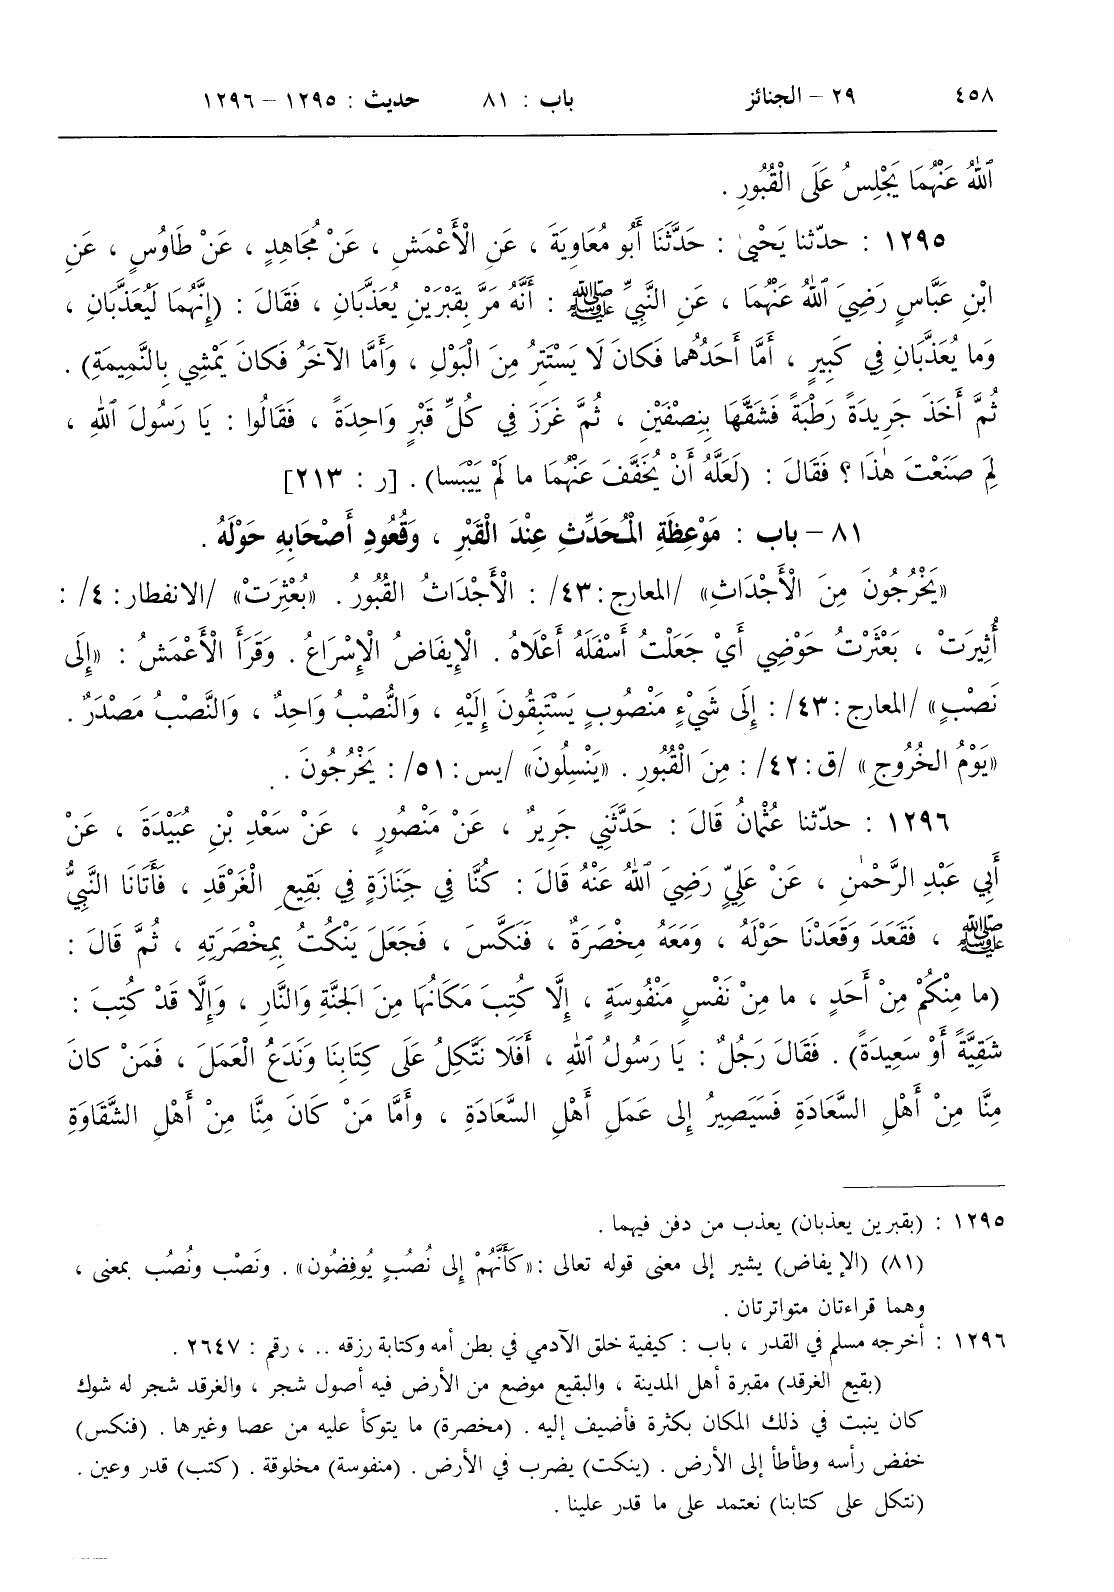 ٤٥٨ ٢٩ - الجنائز باب : ٨١ حديث : ١٢٩٥ - ١٢٩٦
ٱللهُ عَنْهُمَا يَجْلِسُ عَلَى الْقُبُورِ .
١٢٩٥ : حدّثنا يَحْيىٰ : حَدَّثَنَا أَبُو مُعَاوِيَةَ ، عَنِ الْأَعْمَشِ ، عَنْ مُجَاهِدٍ ، عَنْ طَاوُسٍ ، عَنِ
ابْنِ عَبَّاسٍ رَضِيَ ٱللهُ عَنْهُمَا ، عَنِ النَّبِيِّ ﷺ : أَنَّهُ مَرَّ بِقَبْرَيْنِ يُعَذَّبَانِ ، فَقَالَ : (إِنَّهُمَا لَيُعَذَّبَانِ ،
وَما يُعَذَّبَانِ فِي كَبِيرٍ ، أَمَّا أَحَدُهُما فَكانَ لَا يَسْتَتِرُ مِنَ الْبَوْلِ ، وَأَمَّا الآخَرُ فَكانَ يَمْشِي بِالنَّمِيمَةِ) .
ثُمَّ أَخَذَ جَرِيدَةً رَطْبَةً فَشَقَّهَا بِنِصْفَيْنِ ، ثُمَّ غَرَزَ فِي كُلِّ قَبْرٍ وَاحِدَةً ، فَقَالُوا : يَا رَسُولَ ٱللهِ ،
لِمَ صَنَعْتَ هٰذَا ؟ فَقَالَ : (لَعَلَّهُ أَنْ يُخَفَّفَ عَنْهُمَا ما لَمْ يَيْبَسا) . [ر : ٢١٣]
٨١ - باب : مَوْعِظَةِ الْمُحَدِّثِ عِنْدَ الْقَبْرِ ، وَقُعُودِ أَصْحَابِهِ حَوْلَهُ .
«يَخْرُجُونَ مِنَ الْأَجْدَاثِ» /المعارج : ٤٣/ : الْأَجْدَاثُ القُبُورُ . «بُعْثِرَتْ» /الانفطار : ٤/ :
أُثِيرَتْ ، بَعْثَرْتُ حَوْضِي أَيْ جَعَلْتُ أَسْفَلَهُ أَعْلَاهُ . الْإِيفَاضُ الْإِسْرَاعُ . وَقَرَأَ الْأَعْمَشُ : «إِلَى
نَصْبٍ» /المعارج : ٤٣/ : إِلَى شَيْءٍ مَنْصُوبٍ يَسْتَبِقُونَ إِلَيْهِ ، وَالنُّصْبُ وَاحِدٌ ، وَالنَّصْبُ مَصْدَرٌ .
«يَوْمُ الخُرُوجِ» /ق : ٤٢/ : مِنَ الْقُبُورِ . «يَنْسِلُونَ» /يس : ٥١/ : يَخْرُجُونَ .
١٢٩٦ : حدّثنا عُثْمانُ قَالَ : حَدَّثَنِي جَرِيرٌ ، عَنْ مَنْصُورٍ ، عَنْ سَعْدِ بْنِ عُبَيْدَةَ ، عَنْ
أَبِي عَبْدِ الرَّحْمٰنِ ، عَنْ عَلِيٍّ رَضِيَ ٱللهُ عَنْهُ قَالَ : كُنَّا فِي جَنَازَةٍ فِي بَقِيعِ الْغَرْقَدِ ، فَأَتَانَا النَّبِيُّ
ﷺ ، فَقَعَدَ وَقَعَدْنَا حَوْلَهُ ، وَمَعَهُ مِخْصَرَةٌ ، فَنَكَّسَ ، فَجَعَلَ يَنْكُتُ بِمِخْصَرَتِهِ ، ثُمَّ قَالَ :
(ما مِنْكُمْ مِنْ أَحَدٍ ، ما مِنْ نَفْسٍ مَنْفُوسَةٍ ، إِلَّا كُتِبَ مَكَانُهَا مِنَ الجَنَّةِ وَالنَّارِ ، وَإِلَّا قَدْ كُتِبَ :
شَقِيَّةً أَوْ سَعِيدَةً) . فَقَالَ رَجُلٌ : يَا رَسُولَ ٱللهِ ، أَفَلَا نَتَّكِلُ عَلَى كِتَابِنَا وَنَدَعُ الْعَمَلَ ، فَمَنْ كانَ
مِنَّا مِنْ أَهْلِ السَّعَادَةِ فَسَيَصِيرُ إِلى عَمَلِ أَهْلِ السَّعَادَةِ ، وأَمَّا مَنْ كَانَ مِنَّا مِنْ أَهْلِ الشَّقَاوَةِ
١٢٩٥ : (بقبرين يعذبان) يعذب من دفن فيهما .
(٨١) (الإيفاض) يشير إلى معنى قوله تعالى : «كَأَنَّهُمْ إِلى نُصُبٍ يُوفِضُون» . ونَصْب ونُصُب بمعنى ،
وهما قراءتان متواترتان .
١٢٩٦ : أخرجه مسلم في القدر ، باب : كيفية خلق الآدمي في بطن أمه وكتابة رزقه .. ، رقم : ٢٦٤٧ .
(بقيع الغرقد) مقبرة أهل المدينة ، والبقيع موضع من الأرض فيه أصول شجر ، والغرقد شجر له شوك
كان ينبت في ذلك المكان بكثرة فأضيف إليه . (مخصرة) ما يتوكأ عليه من عصا وغيرها . (فنكس)
خفض رأسه وطأطأ إلى الأرض . (ينكت) يضرب في الأرض . (منفوسة) مخلوقة . (كتب) قدر وعين .
(نتكل على كتابنا) نعتمد على ما قدر علينا .